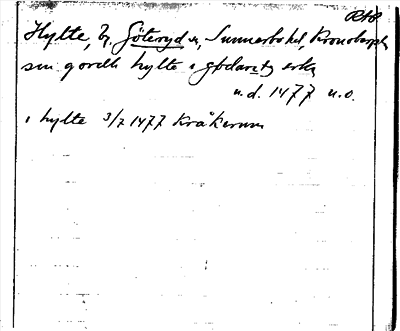 RAÖ
Hylte, by, Göteryd sn, Sunnerbo hd, Kronobergs l.
sin gordh hylte i gødaretz sokn
u.d. 1477 u.o.
i hylte 3/7 1477 Kråkerum